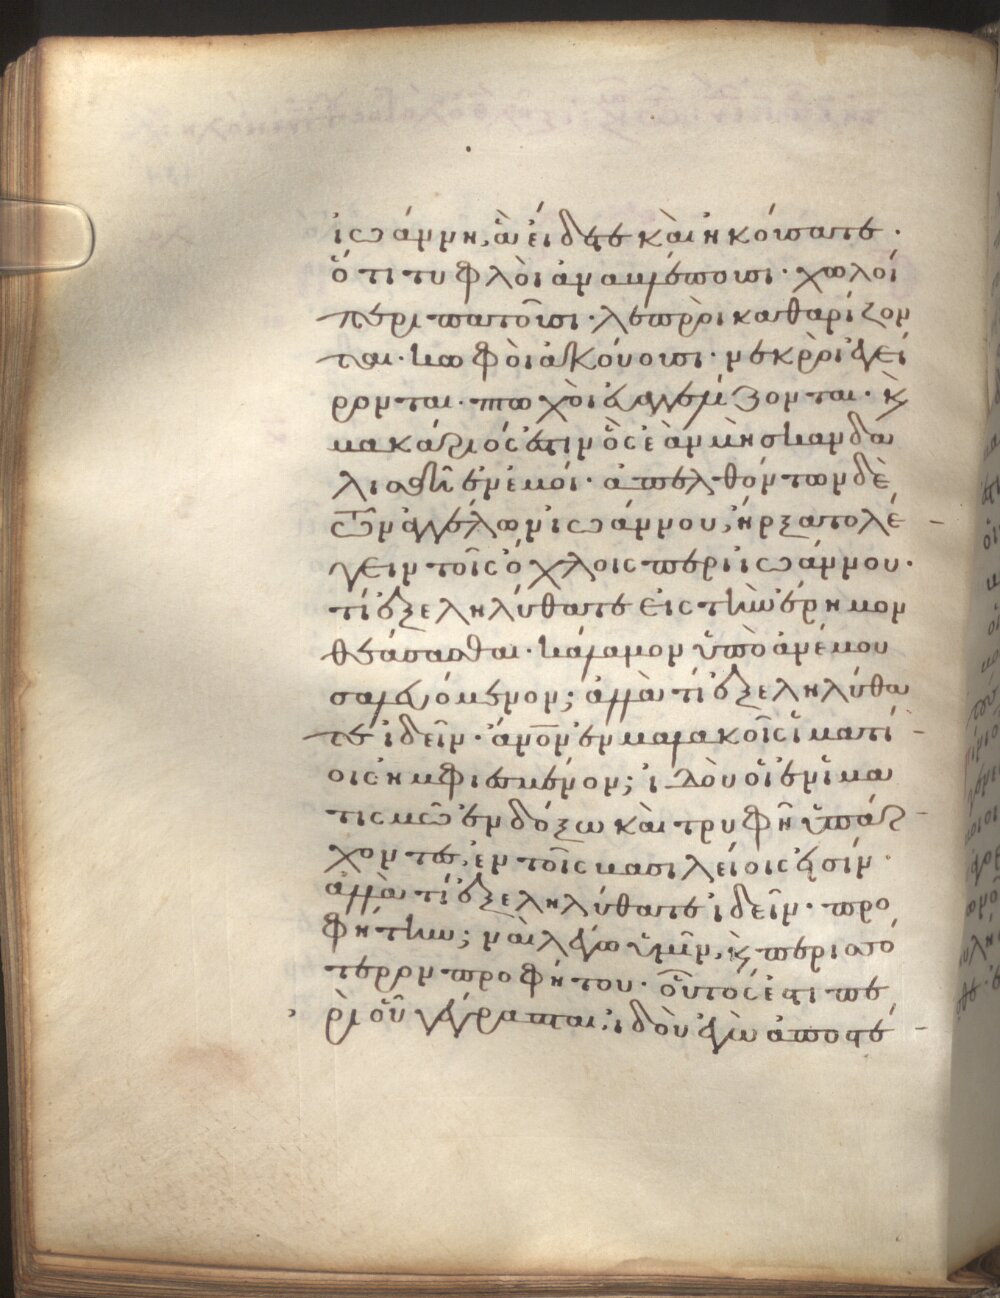 ἰωάννη, ἃ εἴδετε καὶ ἠκούσατε·
ὅτι τυφλοὶ ἀναβλέπουσι· χωλοί
περιπατοῦσι· λεπροὶ καθαρίζον
ται· κωφοὶ ἀκούουσι· νεκροὶ ἐγεί
ρονται· πτωχοὶ εὐαγγελίζονται· κ
μακάριός ἐστιν ὃς ἐὰν μὴ σκανδα
λισθῆ ἐν ἐμοί· ἀπελθόντων δὲ
τῶν ἀγγέλων ἰωάννου, ἤρξατο λέ
γειν τοῖς ὄχλοις περὶ ἰωάννου·
τί ἐξεληλύθατε εἰς τὴν ἔρημον
θεάσασθαι· κάλαμον ὑπὸ ἀνέμου
σαλευόμενον; ἀλλὰ τί ἐξεληλύθα
τε ἰδεῖν· ἄνον ἐν μαλακοῖς ἱματί
οις ἠμφιεσμένον; ἰδοὺ οἱ ἐν ἱμα
τισμῶ ἐνδόξω καὶ τρυφῆ ὑπάρ
χοντες, ἐν τοῖς βασιλείοις εἰσίν·
ἀλλὰ τί ἐξεληλύθατε ἰδεῖν· προ
φήτην; ναὶ λέγω ὑμῖν, κ περισσό
τερον προφήτου· οὗτός ἐστι πε
ρὶ οὗ γέγραπται, ἰδοὺ ἐγὼ ἀποστέ